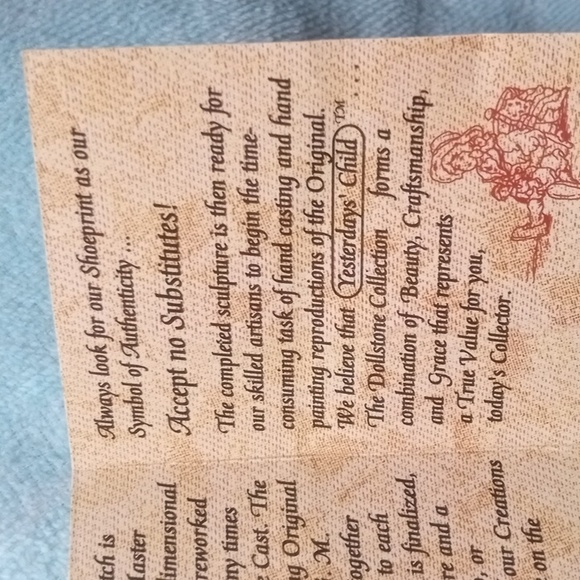 Always look for our Shoeprint as our
Symbol of Authenticity ...
Accept no Substitutes!
The completed sculpture is then ready for
our skilled artisans to begin the time-
consuming task of hand casting and hand
painting reproductions of the Original.
We believe that Yesterdays' Child ™ . . .
The Dollstone Collection forms a
combination of Beauty, Craftsmanship,
and Grace that represents
a True Value for you,
today's Collector.
tch is
Master
imensional
reworked
ny times
e Cast. The
g Original
. M.
ogether
to each
is finalized,
re and a
, or
our Creations
on the